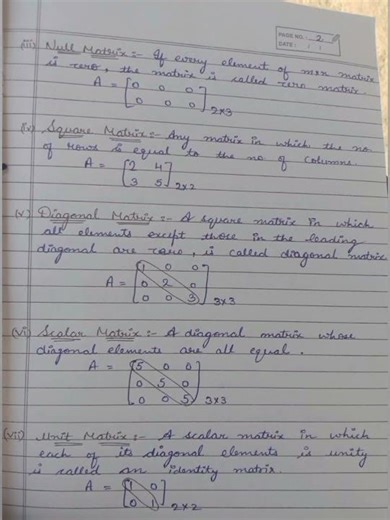 PAGE NO.: 2
DATE: / /
(iii) Null Matrix:- If every element of mxn matrix
is zero, the matrix is called zero matrix.
A = [0 0 0
0 0 0] 2x3
(iv) Square Matrix:- Any matrix in which the no
of rows is equal to the no of columns.
A = [2 4
3 5] 2x2
(v) Diagonal Matrix:- A square matrix in which
all elements except those in the leading
diagonal are zero, is called diagonal matrix
A = [1 0 0
0 2 0
0 0 3] 3x3
(vi) Scalar Matrix:- A diagonal matrix whose
diagonal elements are all equal.
A = [5 0 0
0 5 0
0 0 5] 3x3
(vii) Unit Matrix:- A scalar matrix in which
each of its diagonal elements is unity
is called an identity matrix.
A = [1 0
0 1] 2x2